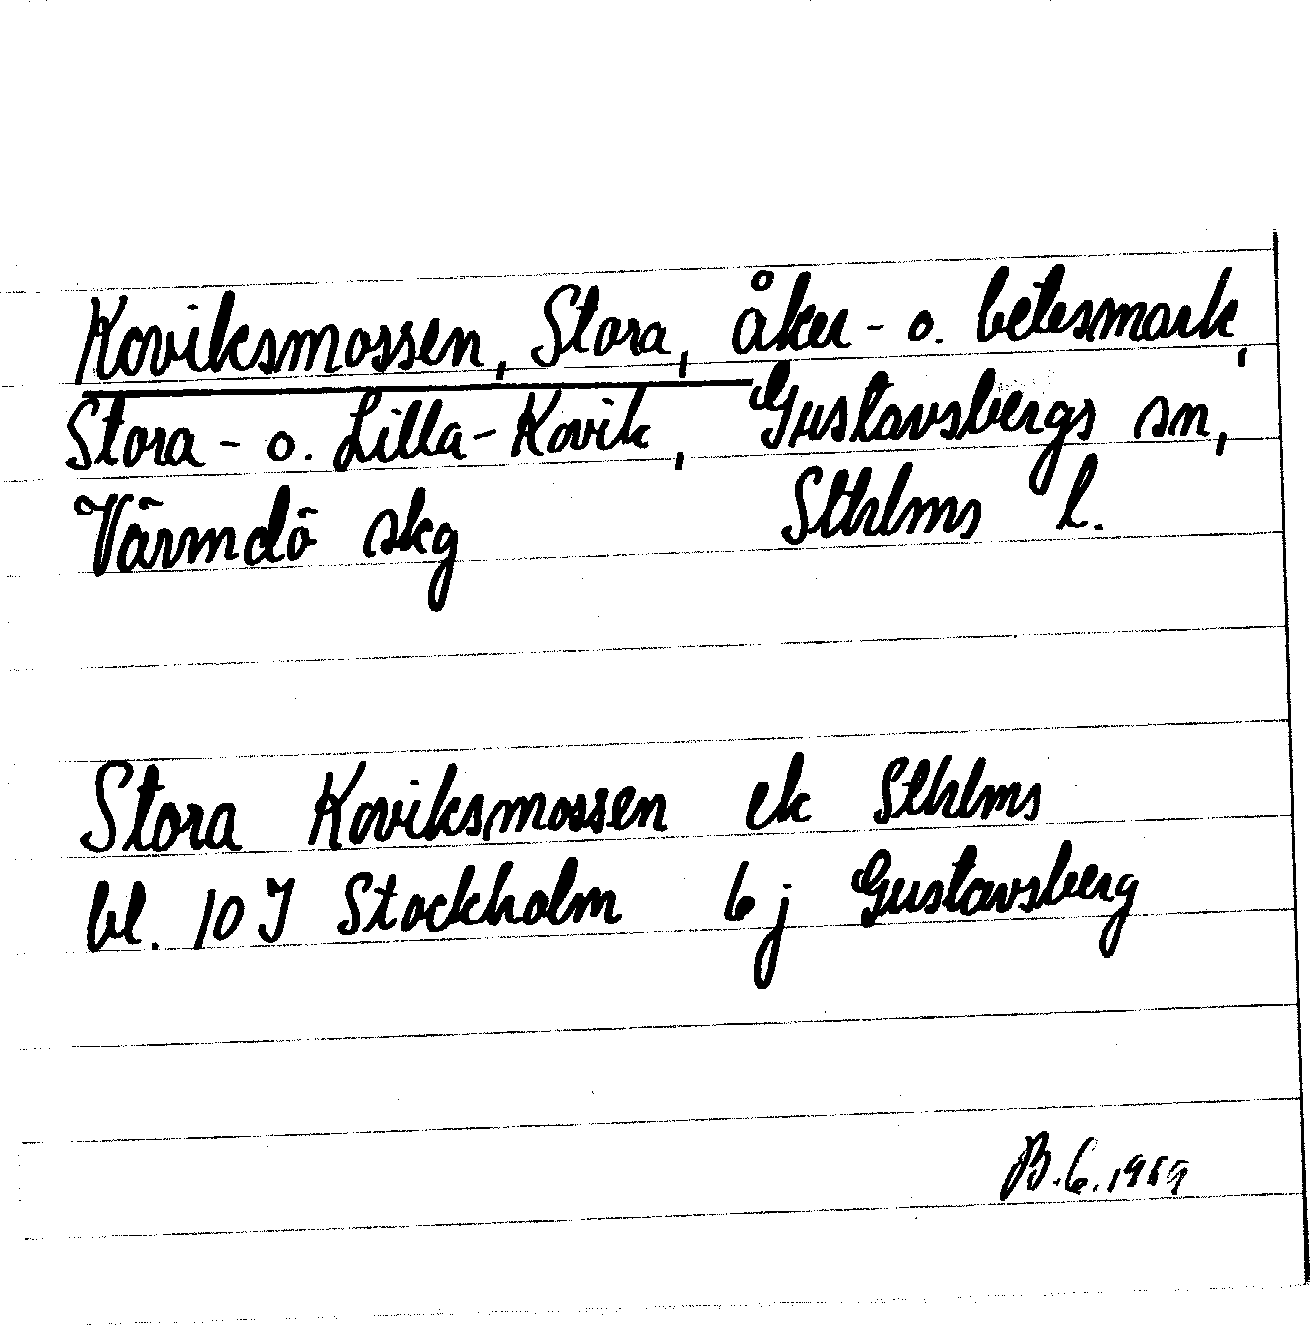 Koviksmossen, Stora, åker- o. betesmark,
Stora- o. Lilla-Kovik, Gustavsbergs sn,
Värmdö skg Sthlms l.
Stora Koviksmossen ek Sthlms
bl. 10 I Stockholm 6 j Gustavsberg
B.G. 1959